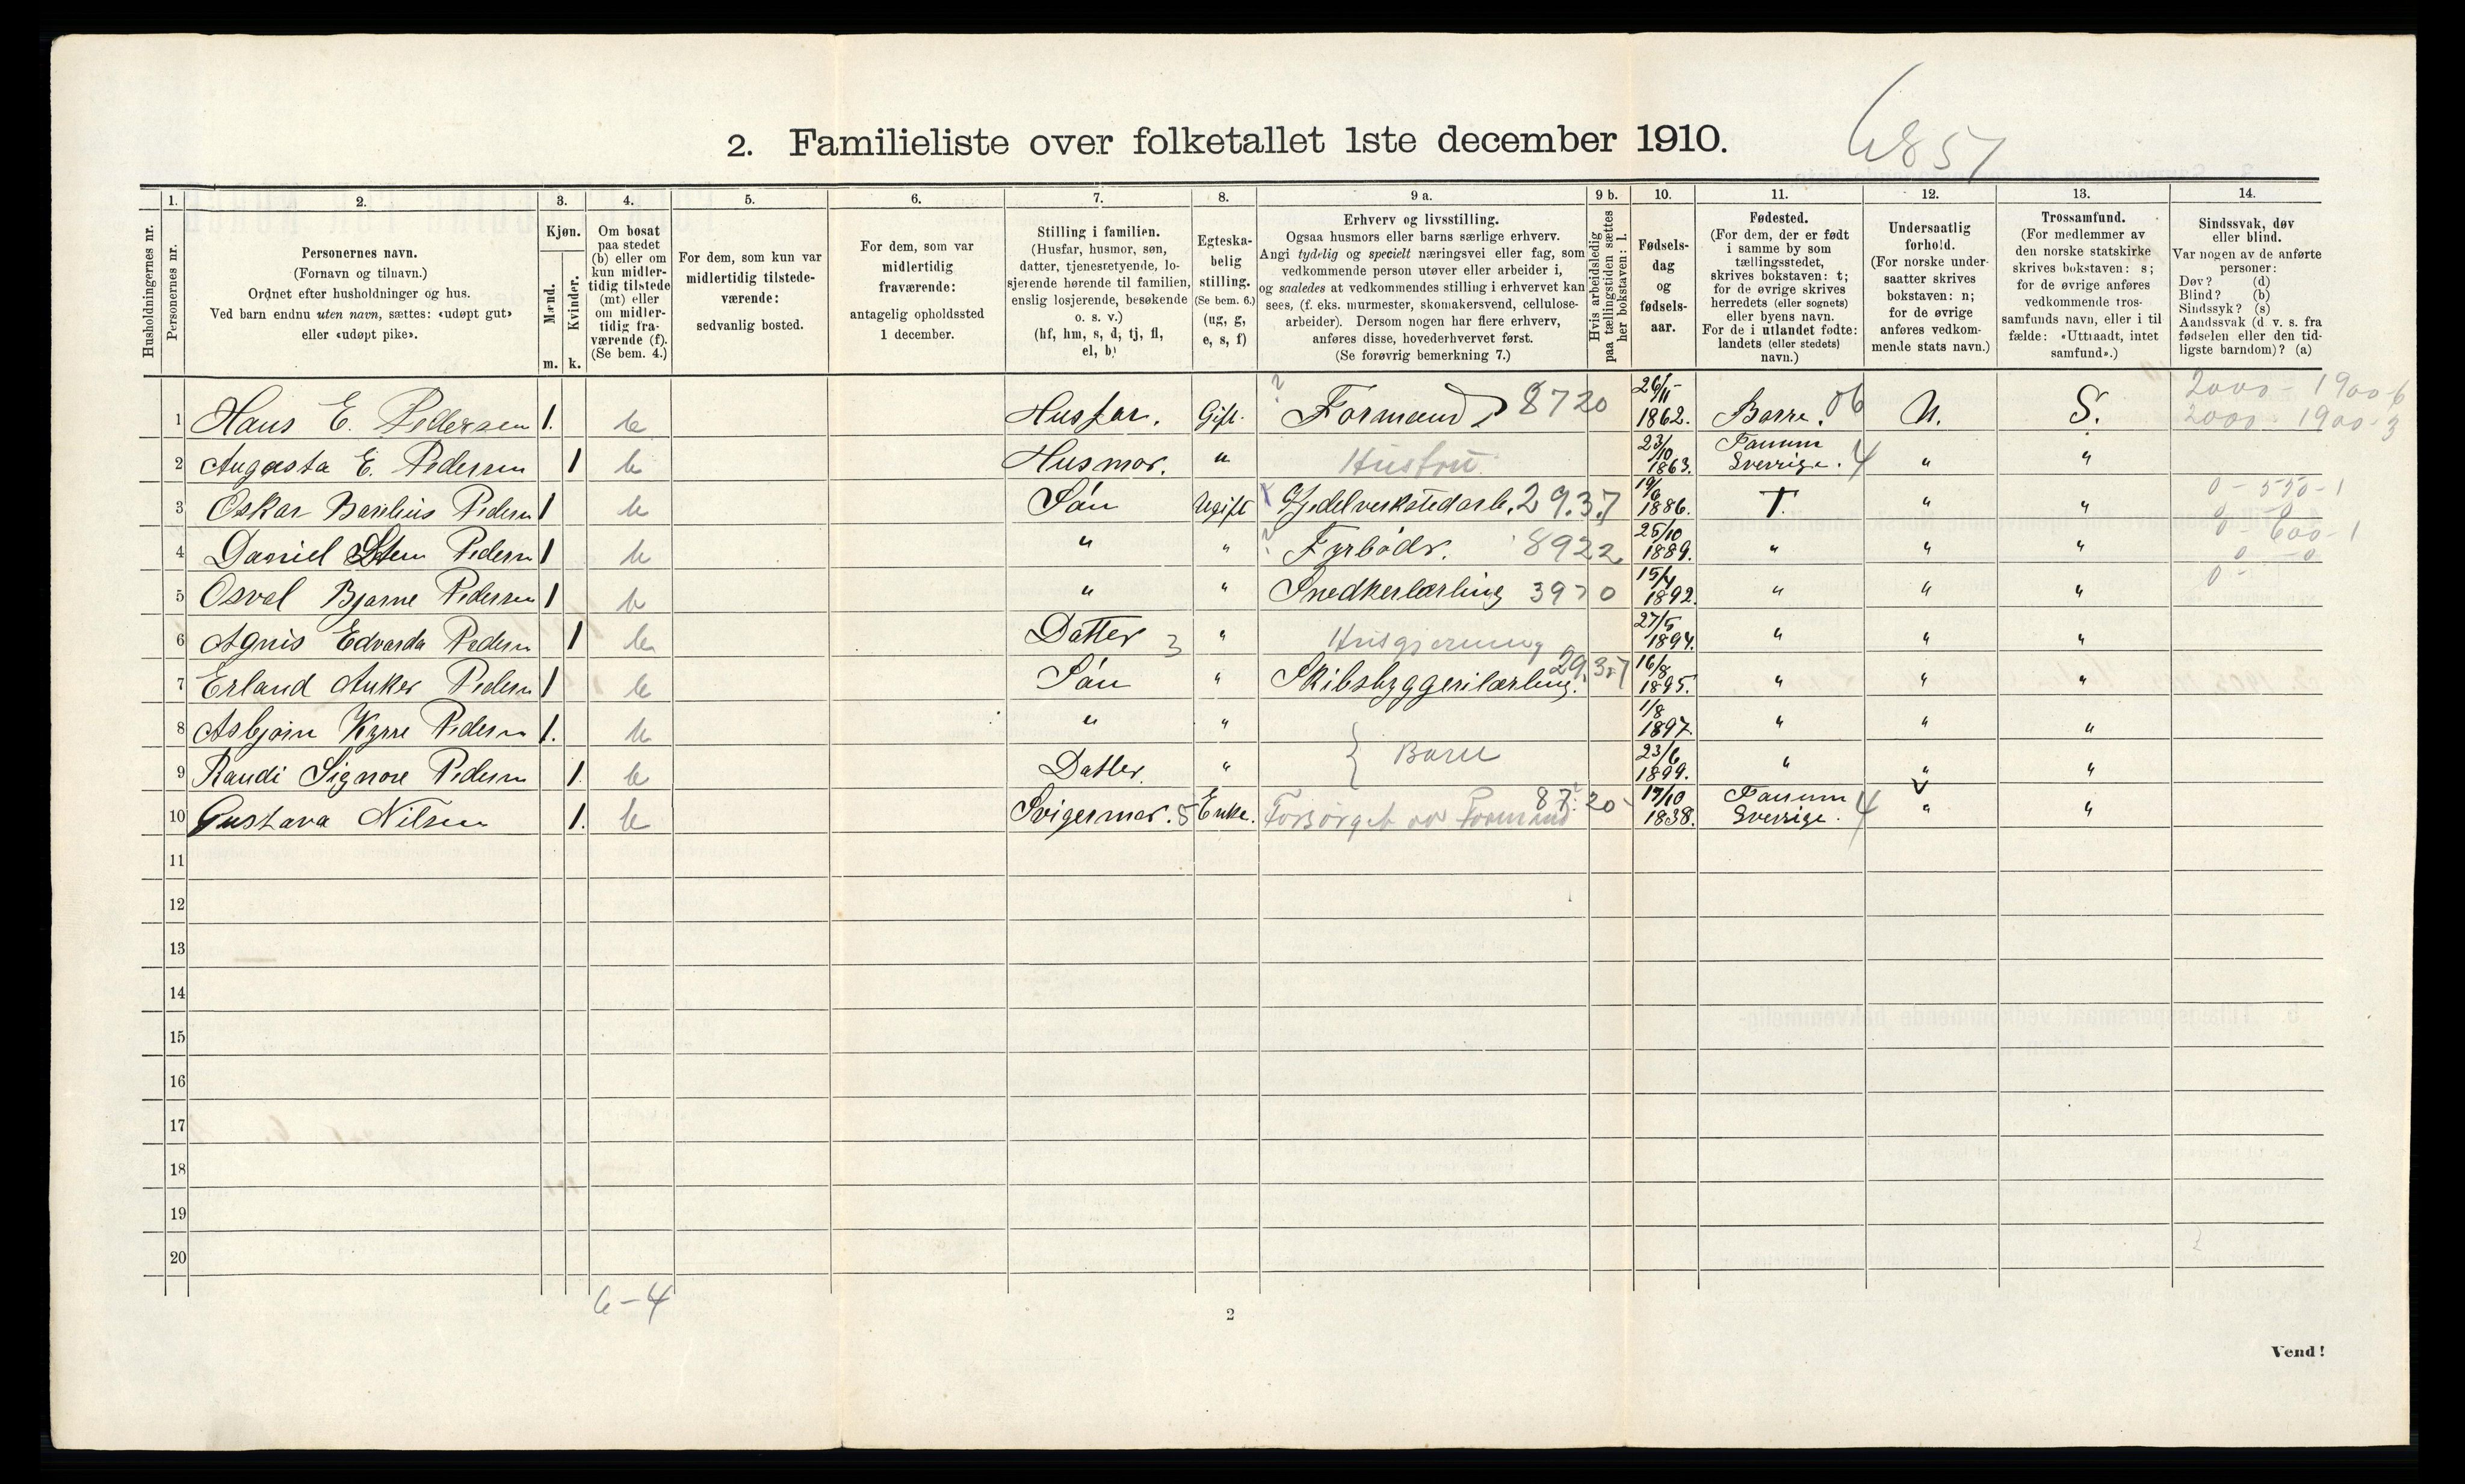 6857
2. Familieliste over folketallet 1ste december 1910.
1. 2. 3. 4. 5. 6. 7. 8. 9 a. 9 b. 10. 11. 12. 13. 14.
Husholdningernes nr.
Personernes nr.
Personernes navn.
(Fornavn og tilnavn.)
Ordnet efter husholdninger og hus.
Ved barn endnu uten navn, sættes: «udøpt gut»
eller «udøpt pike».
Kjøn.
Mænd.
Kvinder.
m. k.
Om bosat
paa stedet
(b) eller om
kun midler-
tidig tilstede
(mt) eller
om midler-
tidig fra-
værende (f).
(Se bem. 4.)
For dem, som kun var
midlertidig tilstede-
værende:
sedvanlig bosted.
For dem, som var
midlertidig
fraværende:
antagelig opholdssted
1 december.
Stilling i familien.
(Husfar, husmor, søn,
datter, tjenestetyende, lo-
sjerende hørende til familien,
enslig losjerende, besøkende
o. s. v.)
(hf, hm, s, d, tj, fl,
el, b)
Egteska-
belig
stilling.
(Se bem. 6.)
(ug, g,
e, s, f)
Erhverv og livsstilling.
Ogsaa husmors eller barns særlige erhverv.
Angi tydelig og specielt næringsvei eller fag, som
vedkommende person utøver eller arbeider i,
og saaledes at vedkommendes stilling i erhvervet kan
sees, (f. eks. murmester, skomakersvend, cellulose-
arbeider). Dersom nogen har flere erhverv,
anføres disse, hovederhvervet først.
(Se forøvrig bemerkning 7.)
Hvis arbeidsledig
paa tællingstiden sættes
her bokstaven: l.
Fødsels-
dag
og
fødsels-
aar.
Fødested.
(For dem, der er født
i samme by som
tællingsstedet,
skrives bokstaven: t;
for de øvrige skrives
herredets (eller sognets)
eller byens navn.
For de i utlandet fødte:
landets (eller stedets)
navn.)
Undersaatlig
forhold.
(For norske under-
saatter skrives
bokstaven: n;
for de øvrige
anføres vedkom-
mende stats navn.)
Trossamfund.
(For medlemmer av
den norske statskirke
skrives bokstaven: s;
for de øvrige anføres
vedkommende tros-
samfunds navn, eller i til
fælde: «Uttraadt, intet
samfund».)
Sindssvak, døv
eller blind.
Var nogen av de anførte
personer:
Døv? (d)
Blind? (b)
Sindssyk? (s)
Aandssvak (d v. s. fra
fødselen eller den tid-
ligste barndom)? (a)
1 Hans E. Pedersen 1. b Husfar. Gift. ? Formand 8720 26/11 1862. Borre. 06 N. S. 2000 - 1900-6
2000 - 1900-3
2 Augusta E. Pedersen 1 b Husmor. " Hustru 23/10 1863. Tanum Sverrige. 4 " "
3 Oskar Basilius Pedersn 1 b Søn Ugift Kjedelverkstedarb. 29.3.7 19/6 1886. T. " " 0 - 550 - 1
4 Daniel Sten Pedersn 1 b " " ? Fyrbødr. 8922 25/10 1889. " " " 0 - 600 - 1
5 Osval Bjarne Pedersen 1 b " " Snedkerlærling 3970 15/4 1892. " " "
6 Agnis Edvarda Pedersn 1 b Datter 3 " Husgjerning 27/5 1894. " " "
7 Erland Anker Pedersn 1 b Søn " Skibsbyggerilærling. 29.3.7 16/8 1895. " " "
8 Asbjørn Kyrre Pedersn 1. b " " 1/8 1897. " " "
9 Randi Signore Pedersn 1. b Datter. " } Barn 23/6 1899. " " "
10 Gustava Nilsen 1. b Svigermor. 5 Enke. Forsørget av Formand 87.20 17/10 1838. Tanum Sverrige. 4 " "
11
12
13
14
15
16
17
18
19
20
6-4
2
Vend!